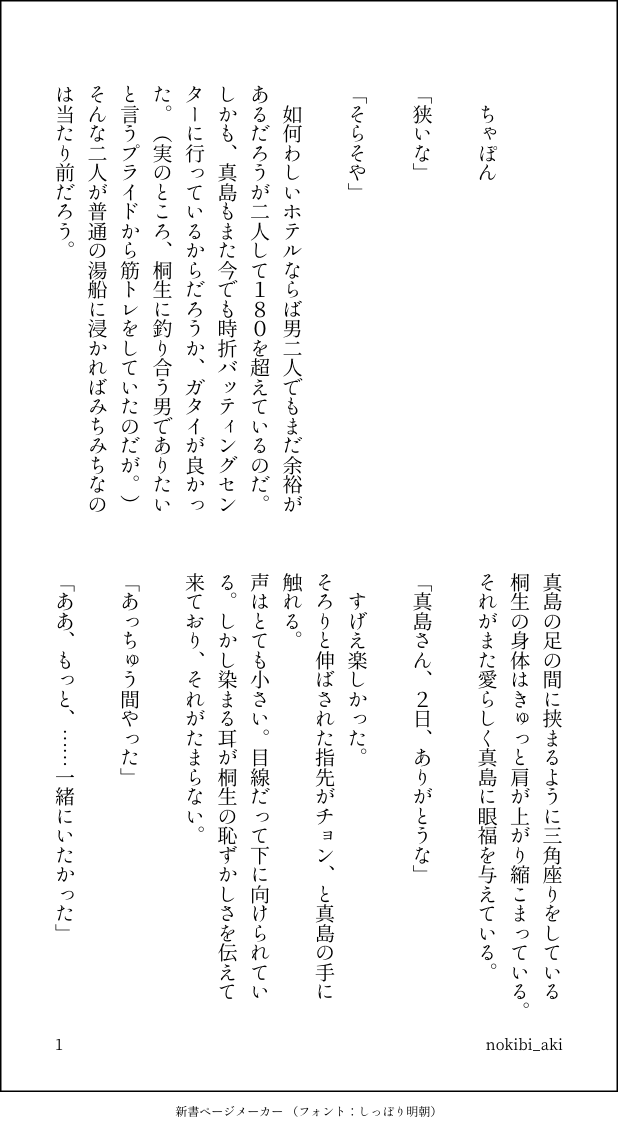 ちゃぽん
「狭いな」
「そらそや」
如何わしいホテルならば男二人でもまだ余裕が
あるだろうが二人して１８０を超えているのだ。
しかも、真島もまた今でも時折バッティングセン
ターに行っているからだろうか、ガタイが良かっ
た。（実のところ、桐生に釣り合う男でありたい
と言うプライドから筋トレをしていたのだが。）
そんな二人が普通の湯船に浸かればみちみちなの
は当たり前だろう。
真島の足の間に挟まるように三角座りをしている
桐生の身体はきゅっと肩が上がり縮こまっている。
それがまた愛らしく真島に眼福を与えている。
「真島さん、２日、ありがとうな」
すげえ楽しかった。
そろりと伸ばされた指先がチョン、と真島の手に
触れる。
声はとても小さい。目線だって下に向けられてい
る。しかし染まる耳が桐生の恥ずかしさを伝えて
来ており、それがたまらない。
「あっちゅう間やった」
「ああ、もっと、……一緒にいたかった」
1
nokibi_aki
新書ページメーカー（フォント：しっぽり明朝）